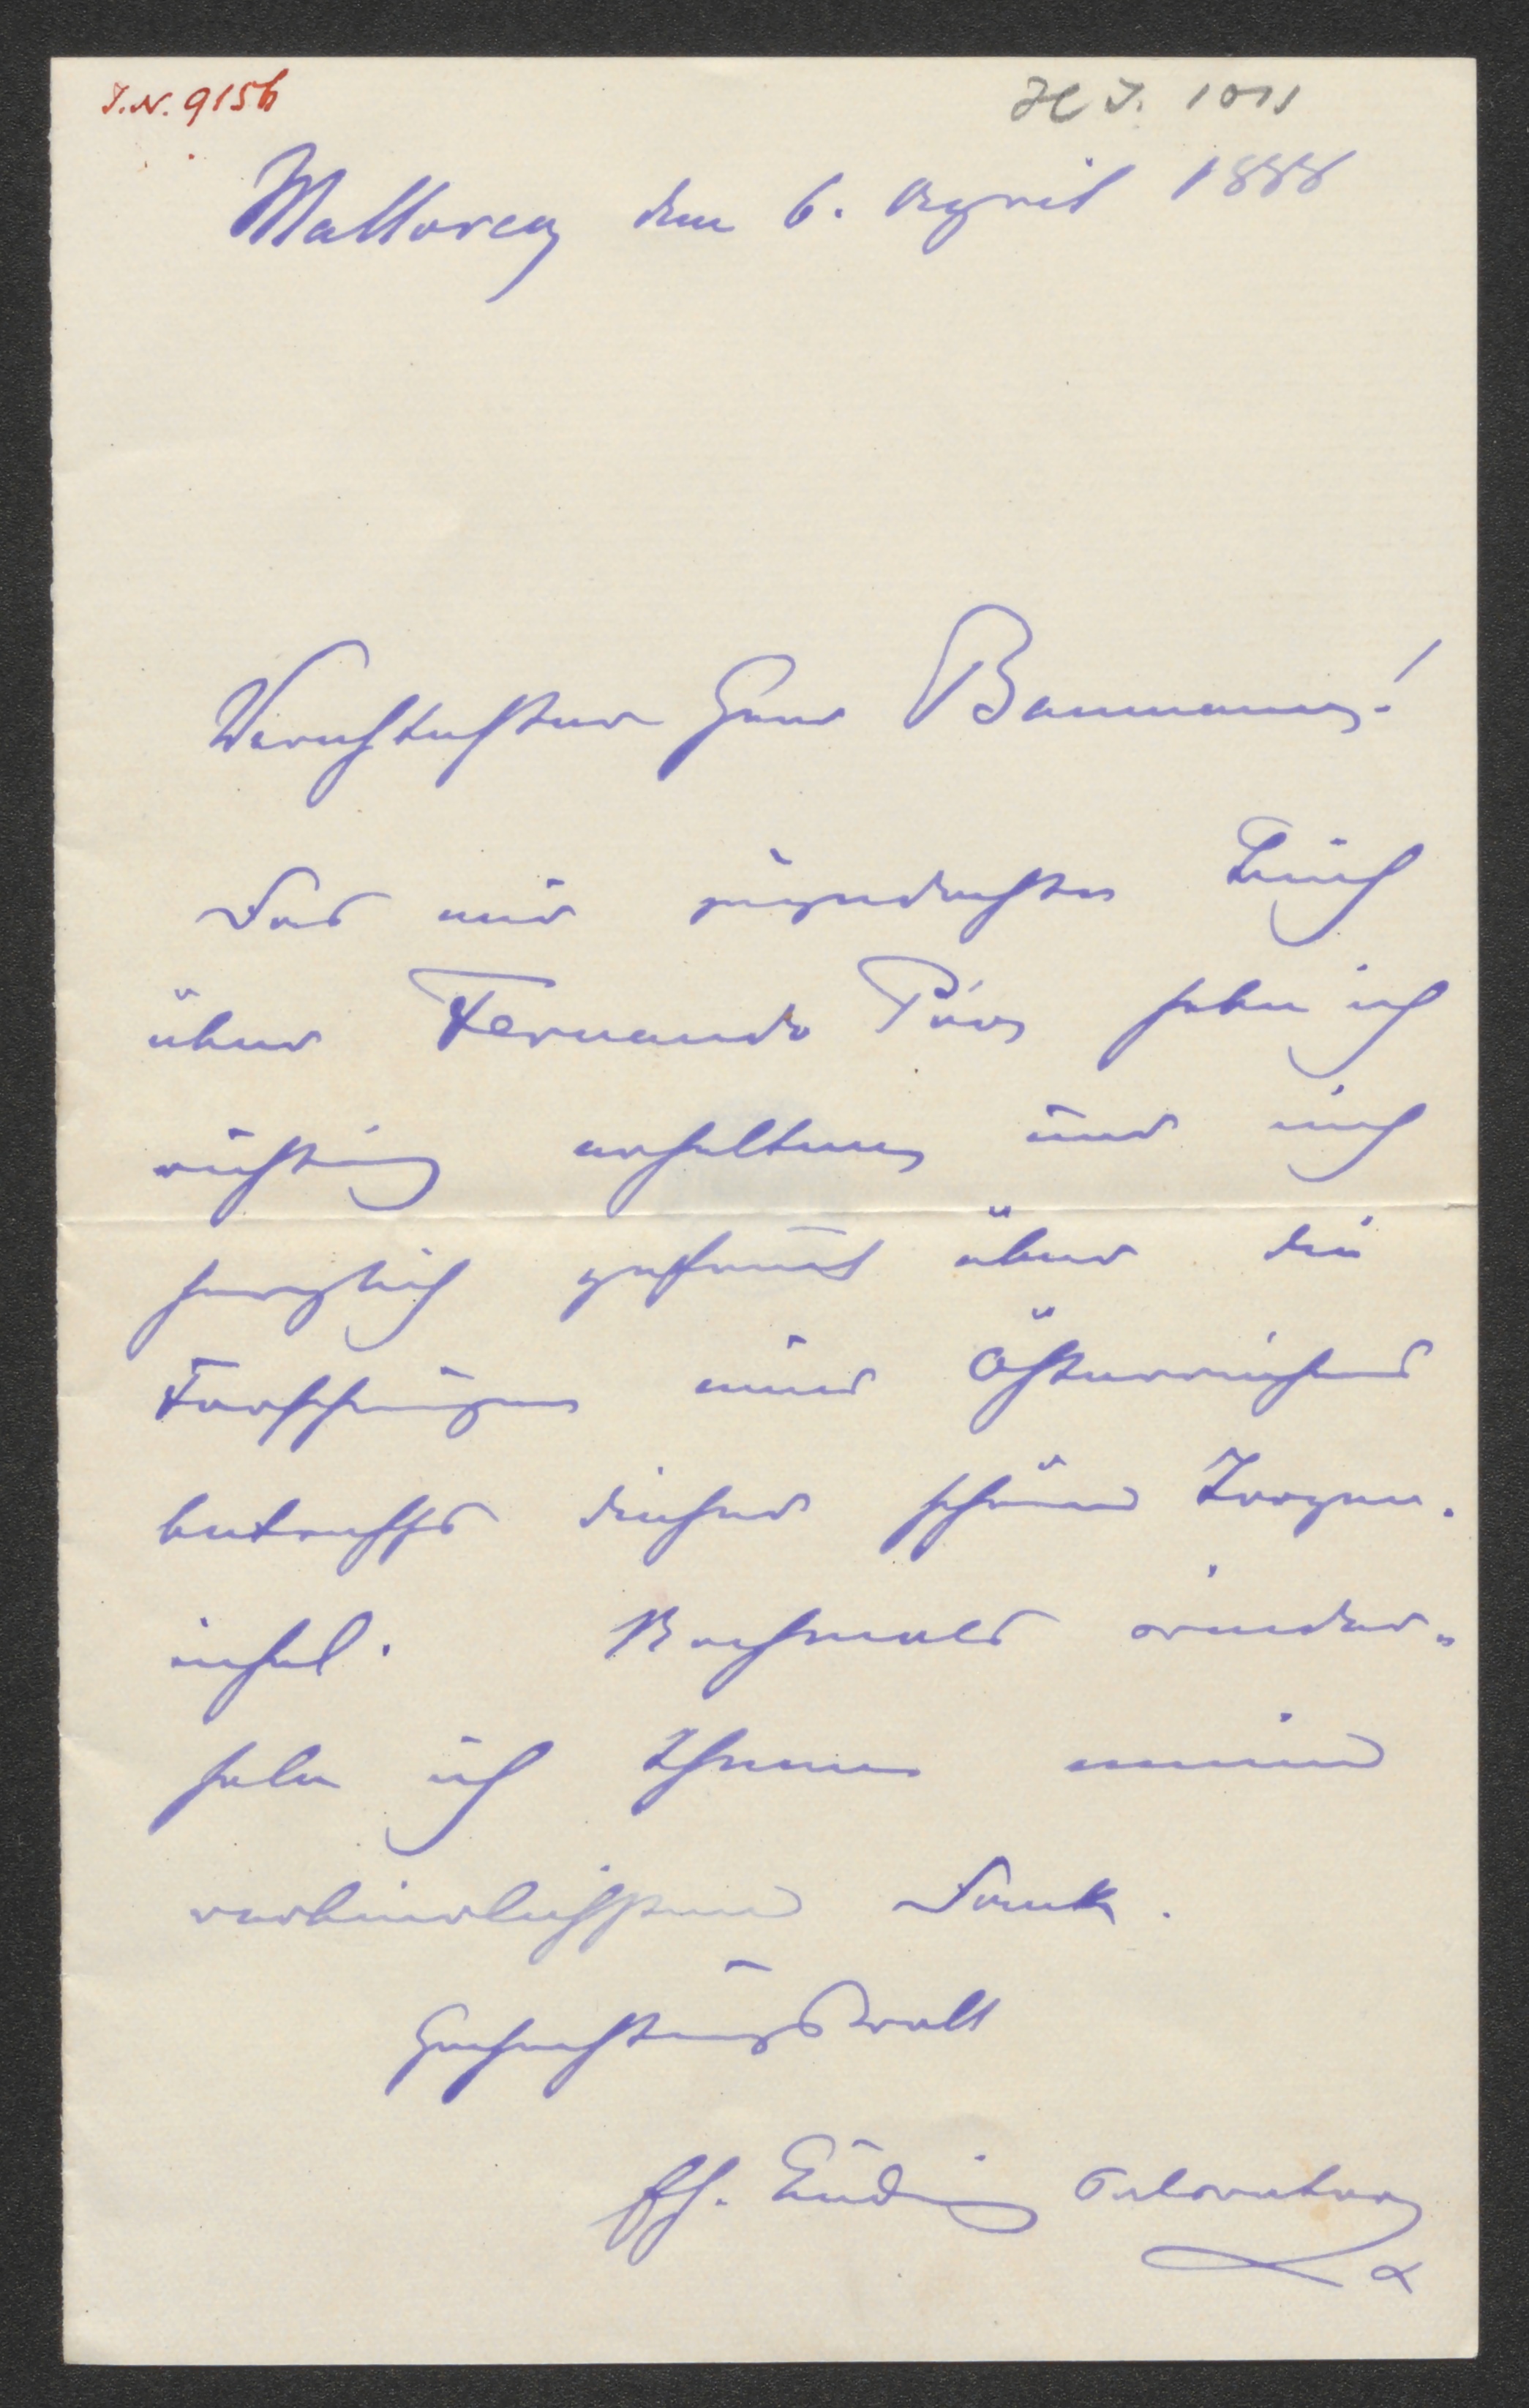 I.N. 9156
H.I. 1011
Mallorca den 6. April 1888
Verehrtester Herr Baumann!
Das mir zugedachte Buch
über Fernando Póo habe ich
richtig erhalten und mich
herzlich gefreut über die
Forschungen eines Österreichers
betreffs dieser schönen Tropen-
insel. Nochmals wieder-
hole ich Ihnen meinen
verbindlichsten Dank.
Hochachtungsvoll
Eh. Ludwig Salvator